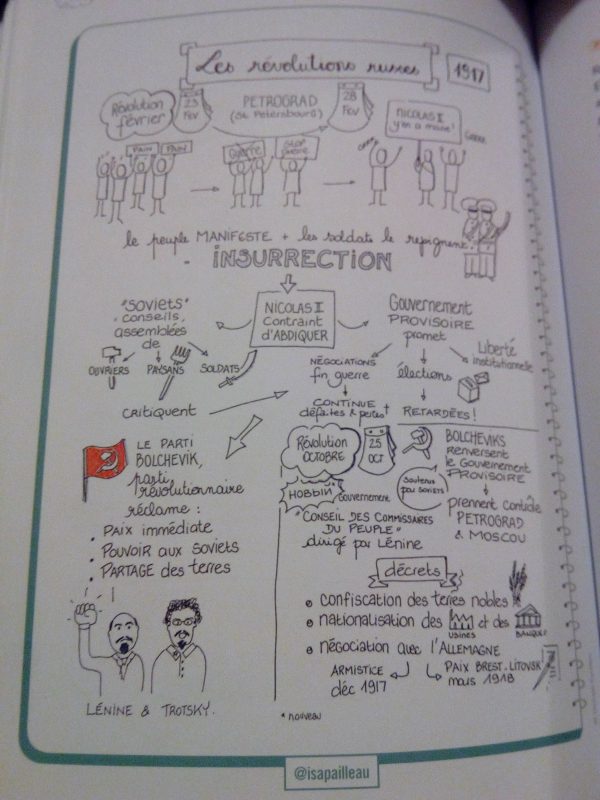 Les révolutions russes
1917
Révolution
février
23
Fev
PETROGRAD
(St. Petersbourg)
28
Fev
PAIN
PAIN
Guerre
STOP
guerre
NICOLAS II
y'en a marre!
le peuple MANIFESTE + les soldats le rejoignent.
= INSURRECTION
"SOVIETS"
conseils,
assemblées
de
OUVRIERS
PAYSANS
SOLDATS
critiquent
NICOLAS II
Contraint
d'ABDIQUER
Gouvernement
PROVISOIRE
promet
NÉGOCIATIONS
fin guerre
CONTINUE
défaites & pertes
élections
RETARDÉES!
Liberté
institutionnelle
LE PARTI
BOLCHEVIK,
parti
révolutionnaire
réclame :
• PAIX immédiate
• POUVOIR aux SOVIETS
• PARTAGE des terres
LÉNINE & TROTSKY.
Révolution
OCTOBRE
25
OCT
BOLCHEVIKS
renversent
le Gouvernement
PROVISOIRE
prennent contrôle
PETROGRAD
& MOSCOU
soutenus
par soviets
Gouvernement
"CONSEIL DES COMMISSAIRES
DU PEUPLE"
dirigé par Lénine
décrets
• confiscation des terres nobles
• nationalisation des
USINES
et des
BANQUE
• négociation avec l'ALLEMAGNE
ARMISTICE
déc 1917
PAIX BREST-LITOVSK
mars 1918
* nouveau
@isapailleau